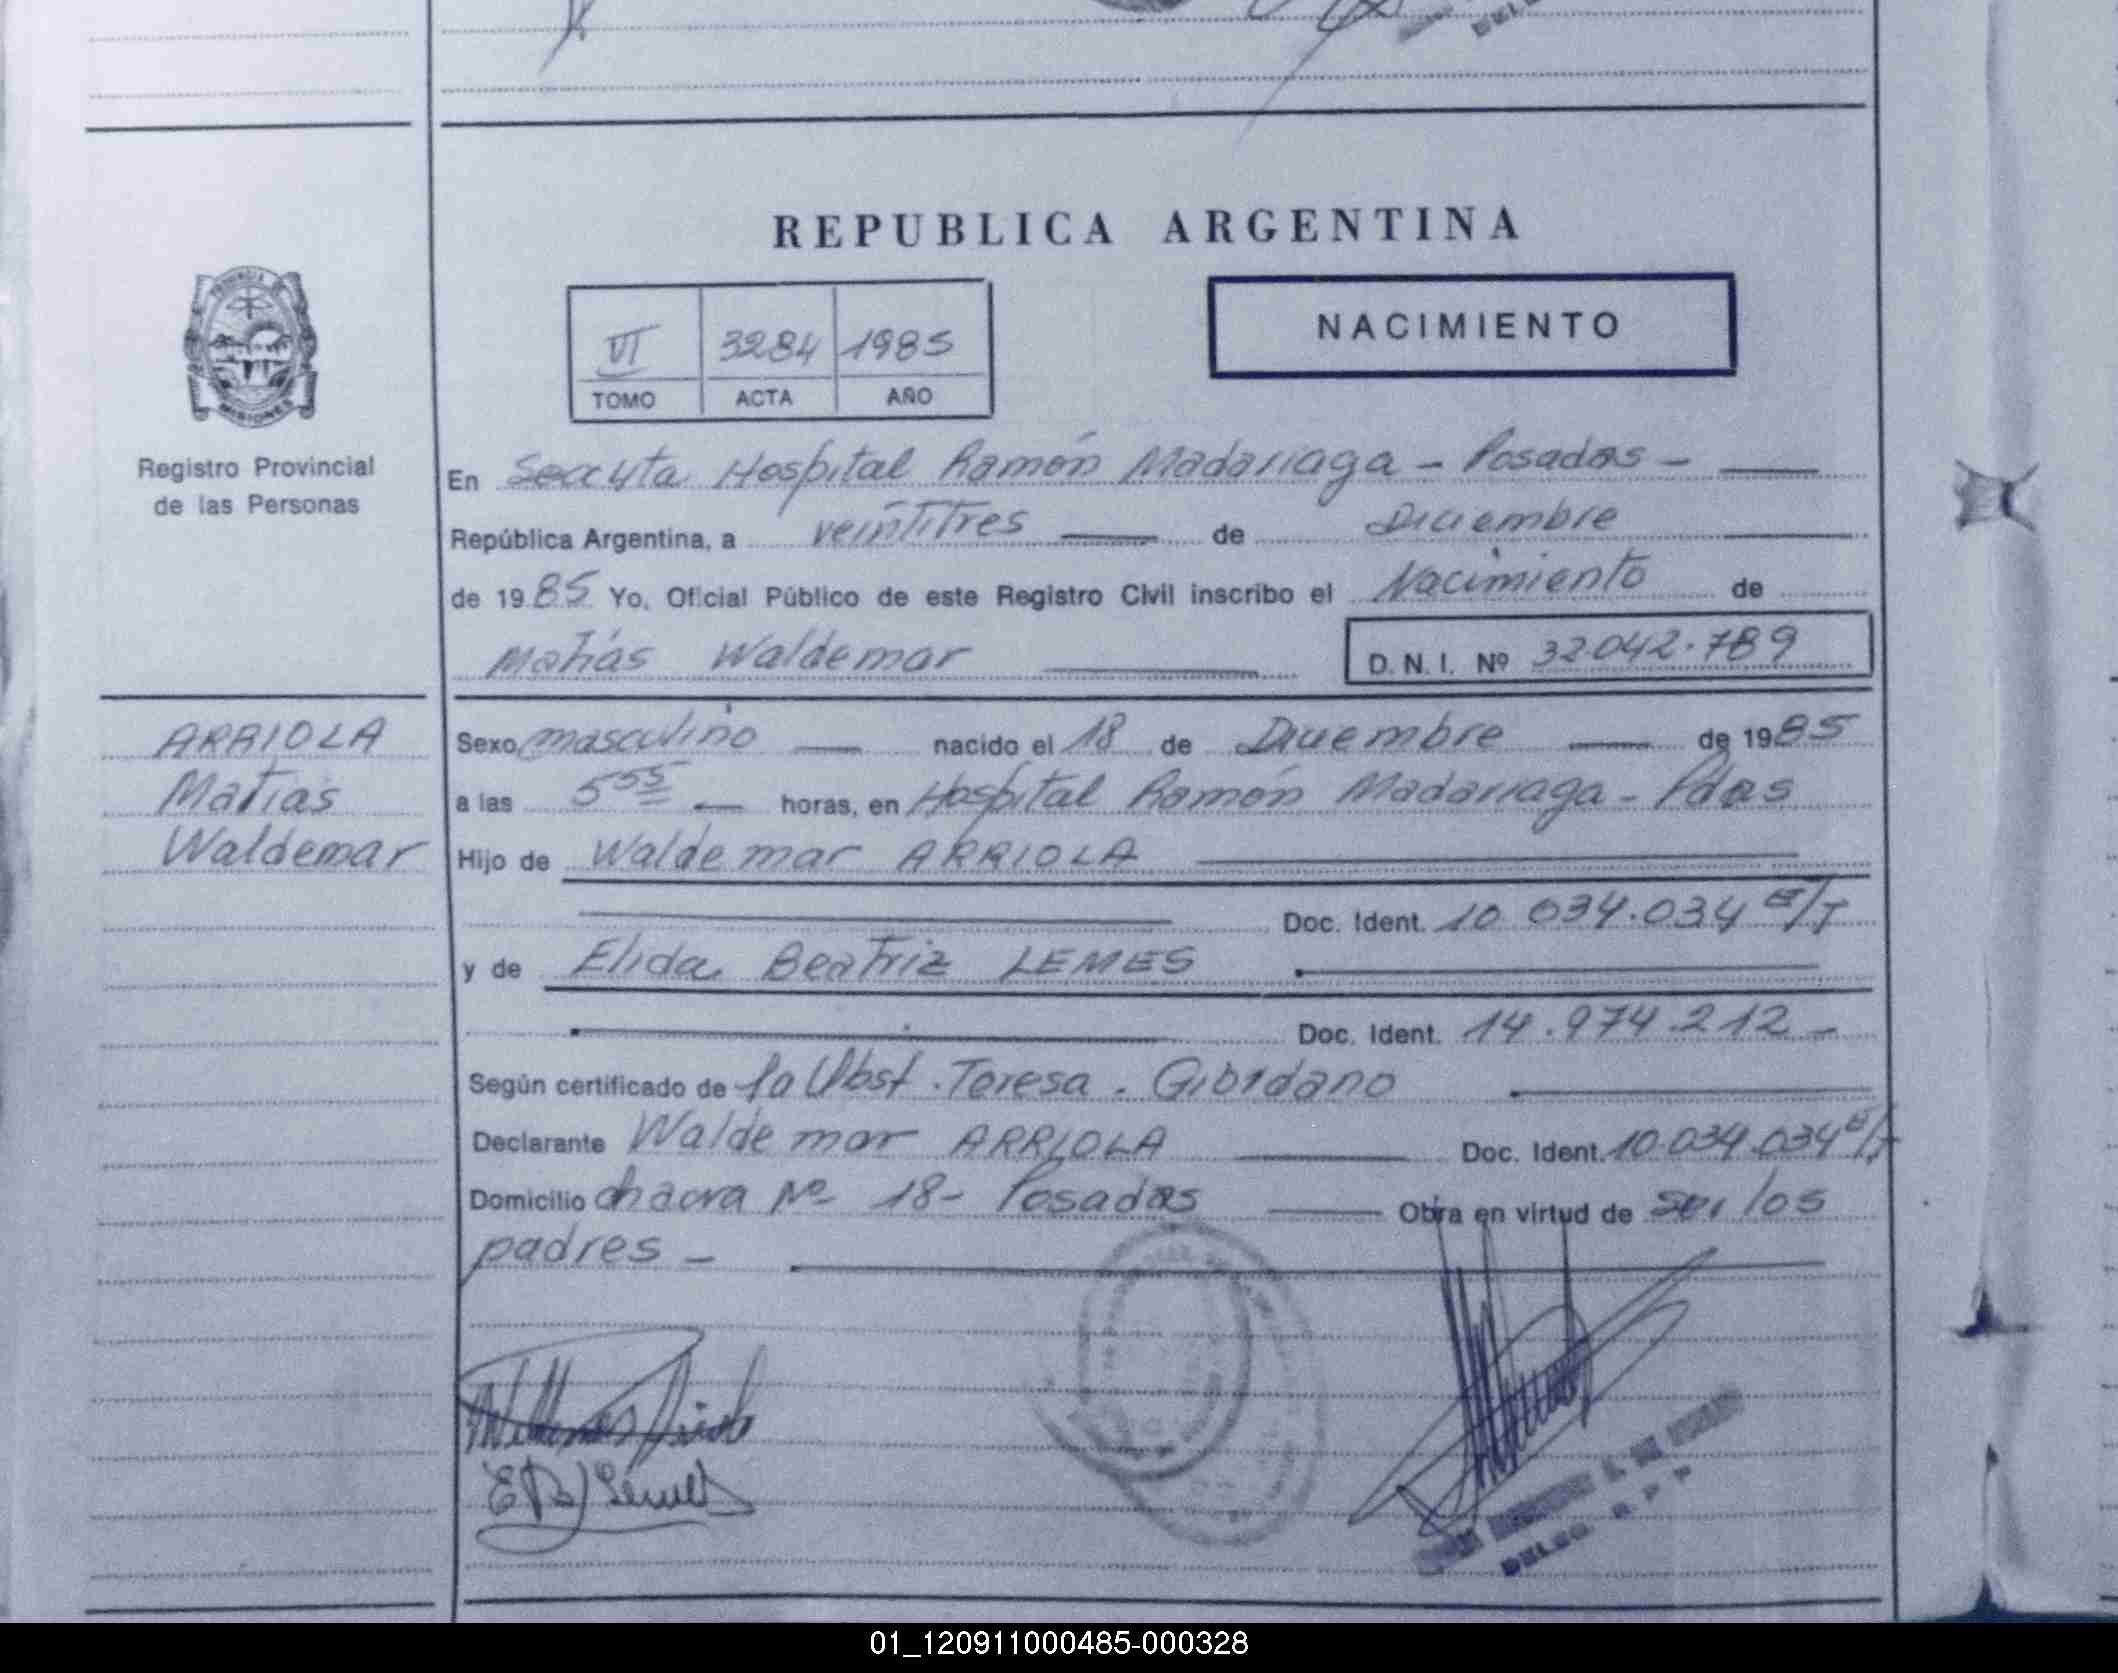 REPUBLICA ARGENTINA
VI 3284 1985
TOMO ACTA AÑO
NACIMIENTO
PROVINCIA
MISIONES
Registro Provincial
de las Personas
En Hospital Ramón Madariaga - Posadas -
República Argentina, a veintitres de Diciembre
de 1985 Yo, Oficial Público de este Registro Civil inscribo el Nacimiento de
Matías Waldemar D. N. I. Nº 32042.789
ARRIOLA
Matías
Waldemar
Sexo masculino nacido el 18 de Diciembre de 1985
a las 5 55 horas, en Hospital Ramón Madariaga - Pdas
Hijo de Waldemar ARRIOLA
Doc. Ident. 10 034.034 E/T
y de Elida Beatriz LEMES
Doc. Ident. 14.974.212 -
Según certificado de la Obst. Teresa. Giordano
Declarante Waldemar ARRIOLA Doc. Ident. 10.034.034 E/T
Domicilio chacra Nº 18 - Posadas Obra en virtud de ser los
padres -
EB Lemes
DELEG. R P P
01_120911000485-000328